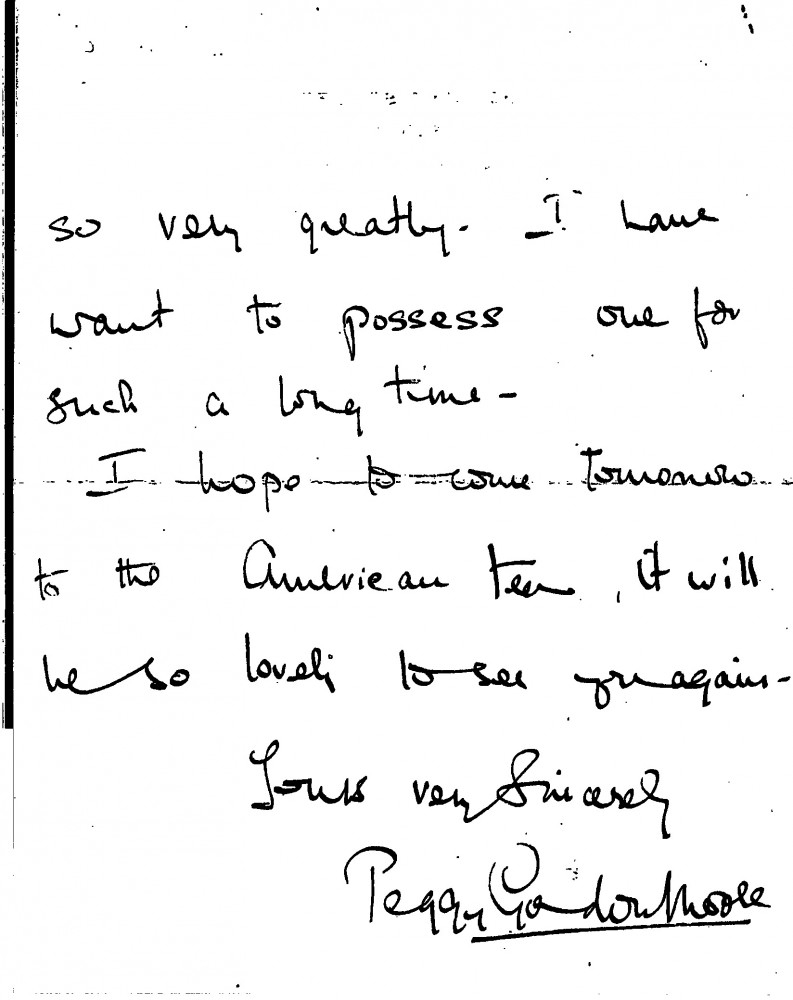 so very greatly. I have
want to possess one for
such a long time -
I hope to come tomorrow
to the American tea, it will
be so lovely to see you again -
Yours very Sincerely
Peggy Gordon Moore